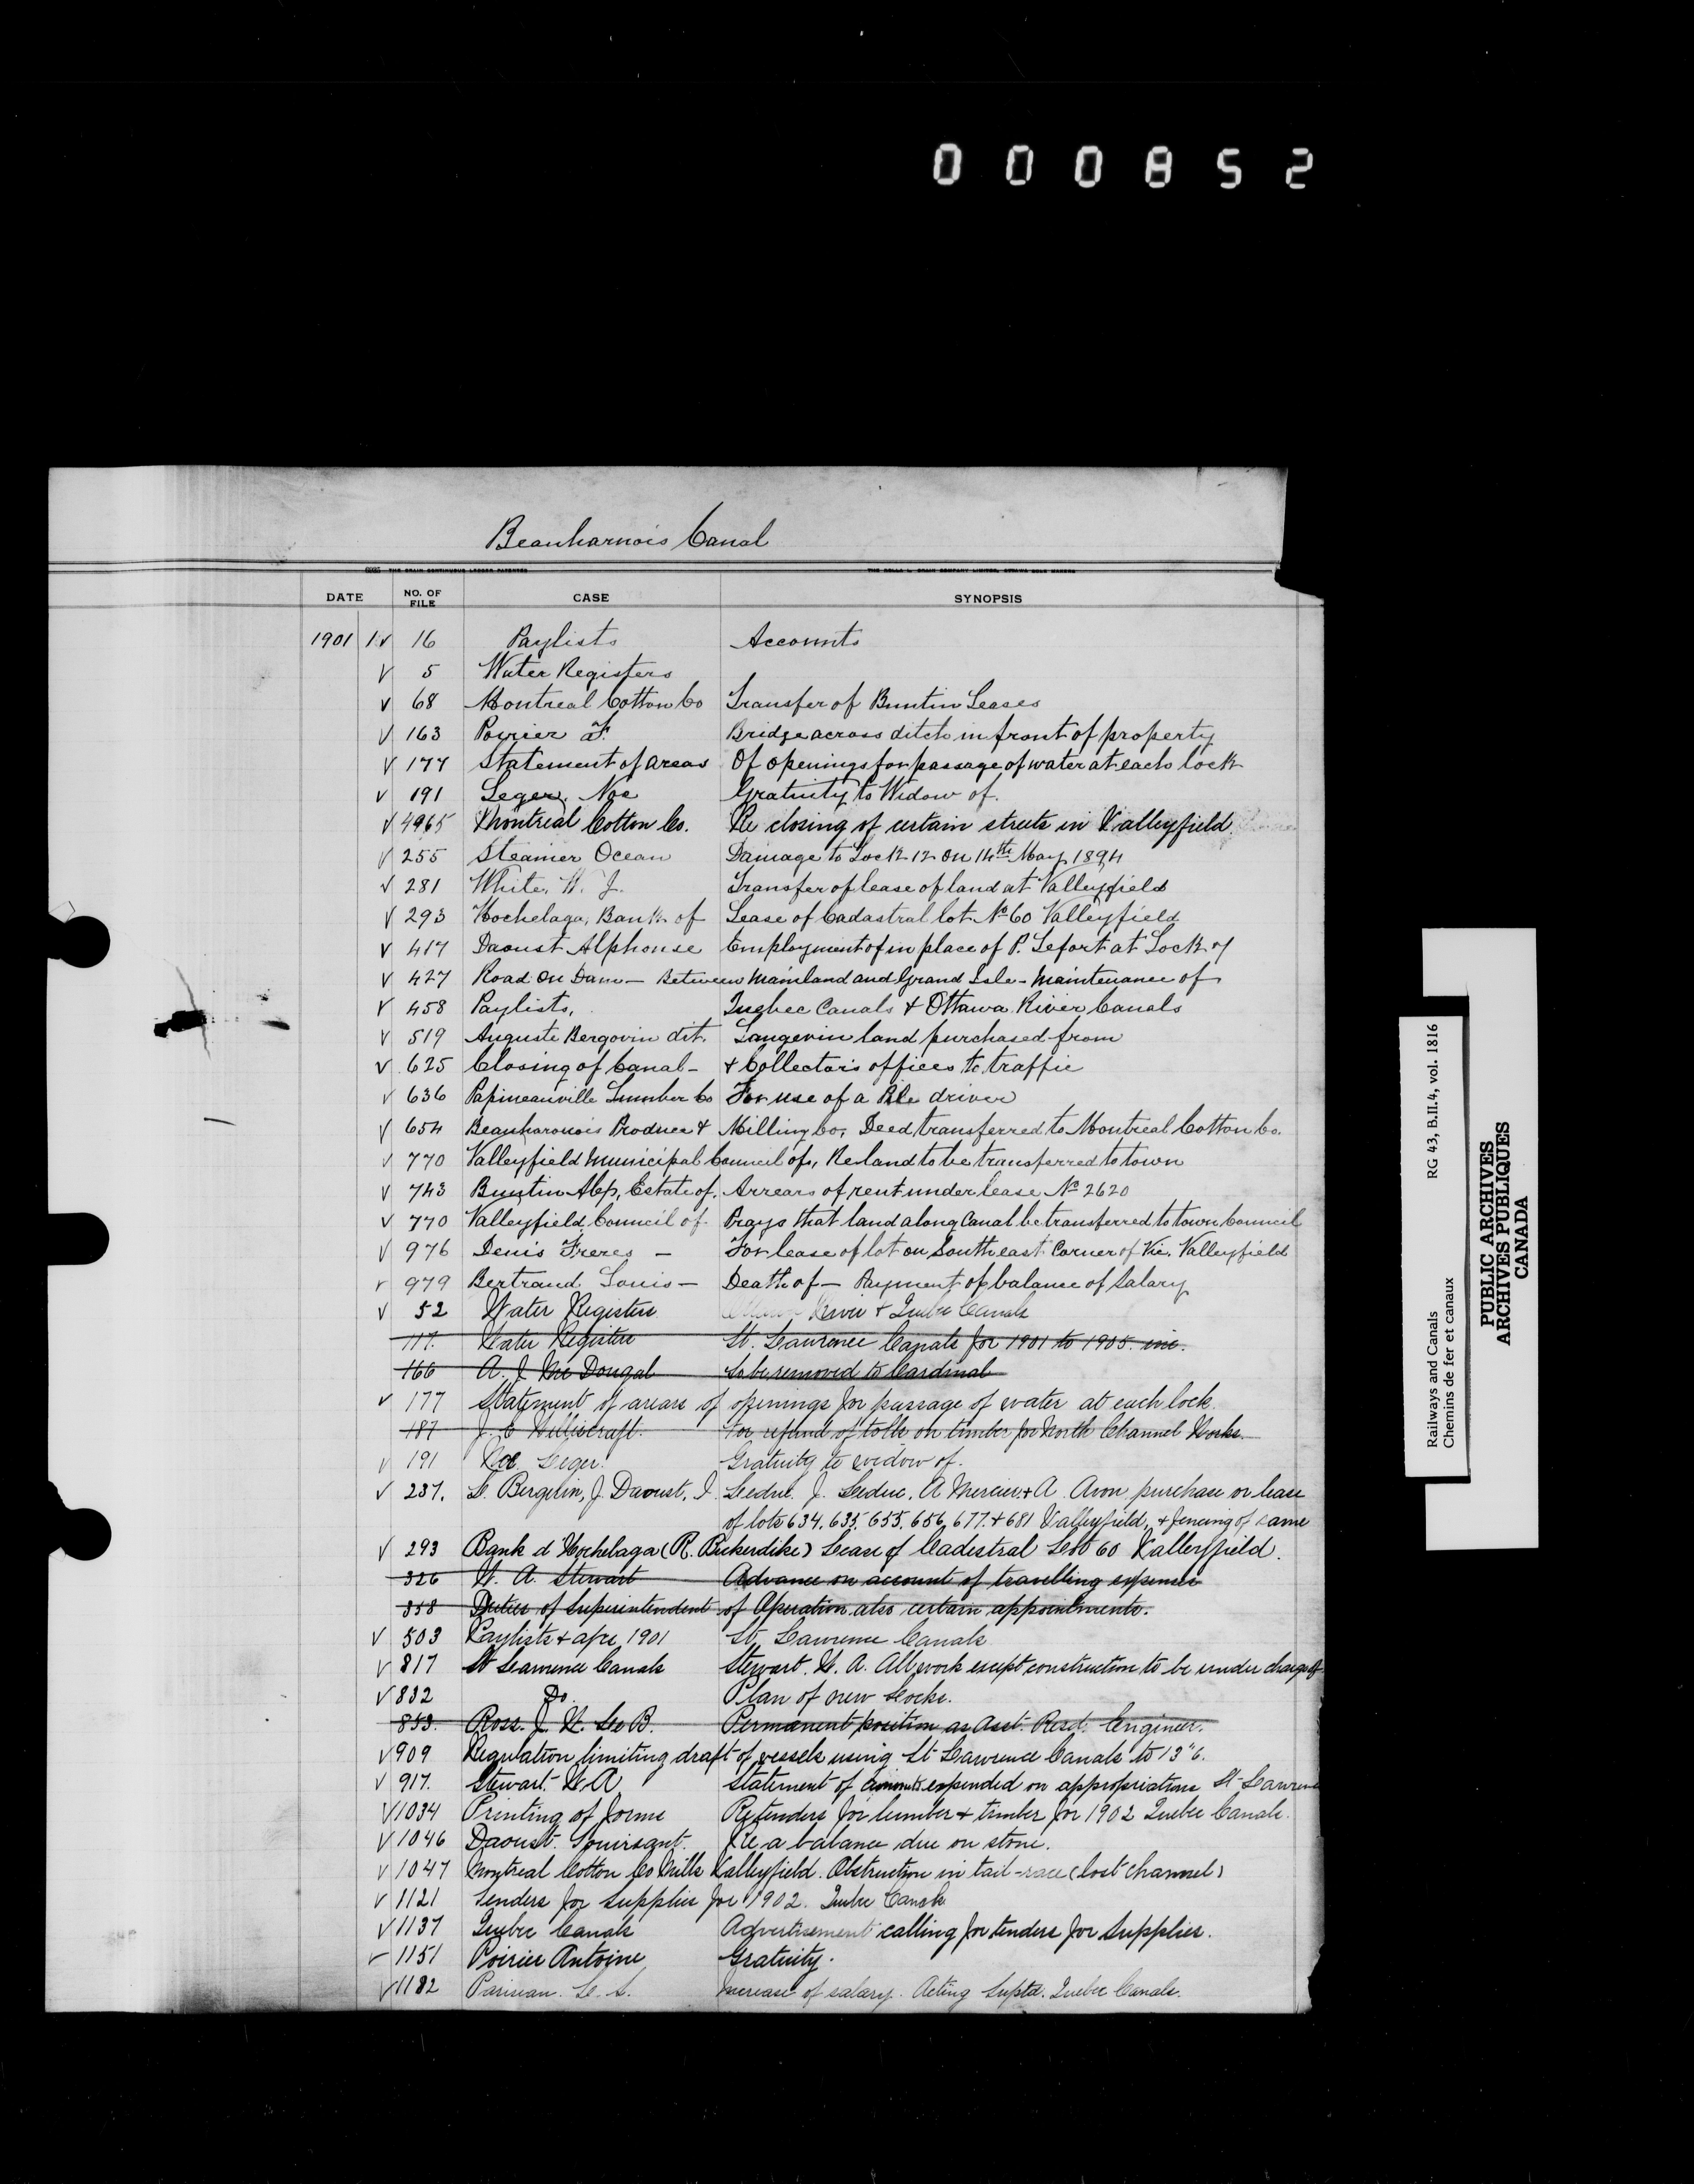 000852
Beauharnois Canal
DATE NO. OF FILE CASE SYNOPSIS
1901 16 Paylists Accounts
5 Water Registers
68 Montreal Cotton Co Transfer of Buntin Leases
163 Poirier F. Bridge across ditch in front of property
177 Statement of areas Of openings for passage of water at each lock
191 Leger, Noe Gratuity to Widow of.
4965 Montreal Cotton Co. Re closing of certain streets in Valleyfield.
255 Steamer Ocean Damage to Lock 12 on 14th May 1894
281 White, W. J. Transfer of lease of land at Valleyfield
293 Hochelaga, Bank of Lease of Cadastral lot No 60 Valleyfield
417 Daoust Alphonse Employment of in place of P. Lefort at Lock 7
427 Road on Dam - Between Mainland and Grand Isle - Maintenance of
458 Paylists, Quebec Canals & Ottawa River Canals
519 Auguste Bergovin dit. Langevin land purchased from
625 Closing of Canal - & Collectors offices to traffic
636 Papineauville Lumber Co For use of a Pile driver
654 Beauharonois Produce & Milling Co, Deed transferred to Montreal Cotton Co.
770 Valleyfield Municipal Council of, Re land to be transferred to town
743 Buntin Alex, Estate of, Arrears of rent under lease No 2620
770 Valleyfield, Council of. Prays that land along Canal be transferred to town Council
976 Denis Freres - For lease of lot on South east Corner of Vic. Valleyfield
979 Bertrand, Louis - Death of - Payment of balance of Salary
52 Water Registers River & Quebec Canals
117. Water Register St. Lawrence Canals for 1901 to 1905. inc.
166 A. J. McDougal to be removed to Cardinal
177 Statement of areas of openings for passage of water at each lock.
187 J. C. Williscraft. For refund of tolls on timber for North Channel Works.
191 Noe Leger. Gratuity to widow of.
237. L. Bergevin, J. Daoust, I. Leduc. J. Leduc. A Mercier & A. Avon purchase or lease
of lots 634. 635. 655. 656. 677. & 681 Valleyfield, & fencing of same
293 Bank d Hochelaga (R. Bickerdike) Lease of Cadestral Lot 60 Valleyfield.
326 W. A. Stewart Advance on account of travelling expenses
358 Duties of Superintendent of Operation also certain appointments.
503 Paylists & 1901 St. Lawrence Canals
817 St Lawrence Canals Stewart. W. A. All work except construction to be under charge of
832 Do. Plan of new Locks.
853. Ross. J. W. Le B. Permanent position as Asst. Resd. Engineer.
909 Regulation limiting draft of vessels using St Lawrence Canals to 13"6.
917. Stewart. W. A. Statement of amounts expended on appropriations St-Lawrence
1034 Printing of forms Re tenders for lumber & timber for 1902 Quebec Canals.
1046 Daoust. Re a balance due on stone.
1047 Montreal Cotton Co Mills Valleyfield. Obstruction in tail-race (lost channel)
1121 Tenders for Supplies for 1902. Quebec Canals
1137 Quebec Canals Advertisement calling for tenders for Supplies.
1151 Poirier Antoine Gratuity.
1182 Parisian. L. S. Increase of salary. Acting Suptd. Quebec Canals.
Railways and Canals RG 43, B.II.4, vol. 1816
Chemins de fer et canaux
PUBLIC ARCHIVES
ARCHIVES PUBLIQUES
CANADA